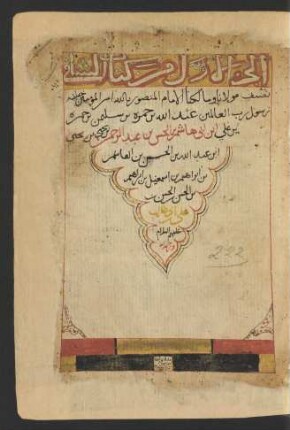 الجزء الاول من كتاب الشافي
تصنيف مولانا ومالكنا الامام المنصور بالله امير المؤمنين
رسول رب العالمين عبد الله بن حمزة بن سليمن بن حمزة
بن علي بن ابي هاشم الحسن بن عبد الرحمن بن يحيى
ابن عبد الله بن الحسين بن القاسم
بن ابراهيم بن اسمعيل بن ابراهيم
بن الحسن الحسن بن
علي بن ابي طالب
عليهم السلام
222